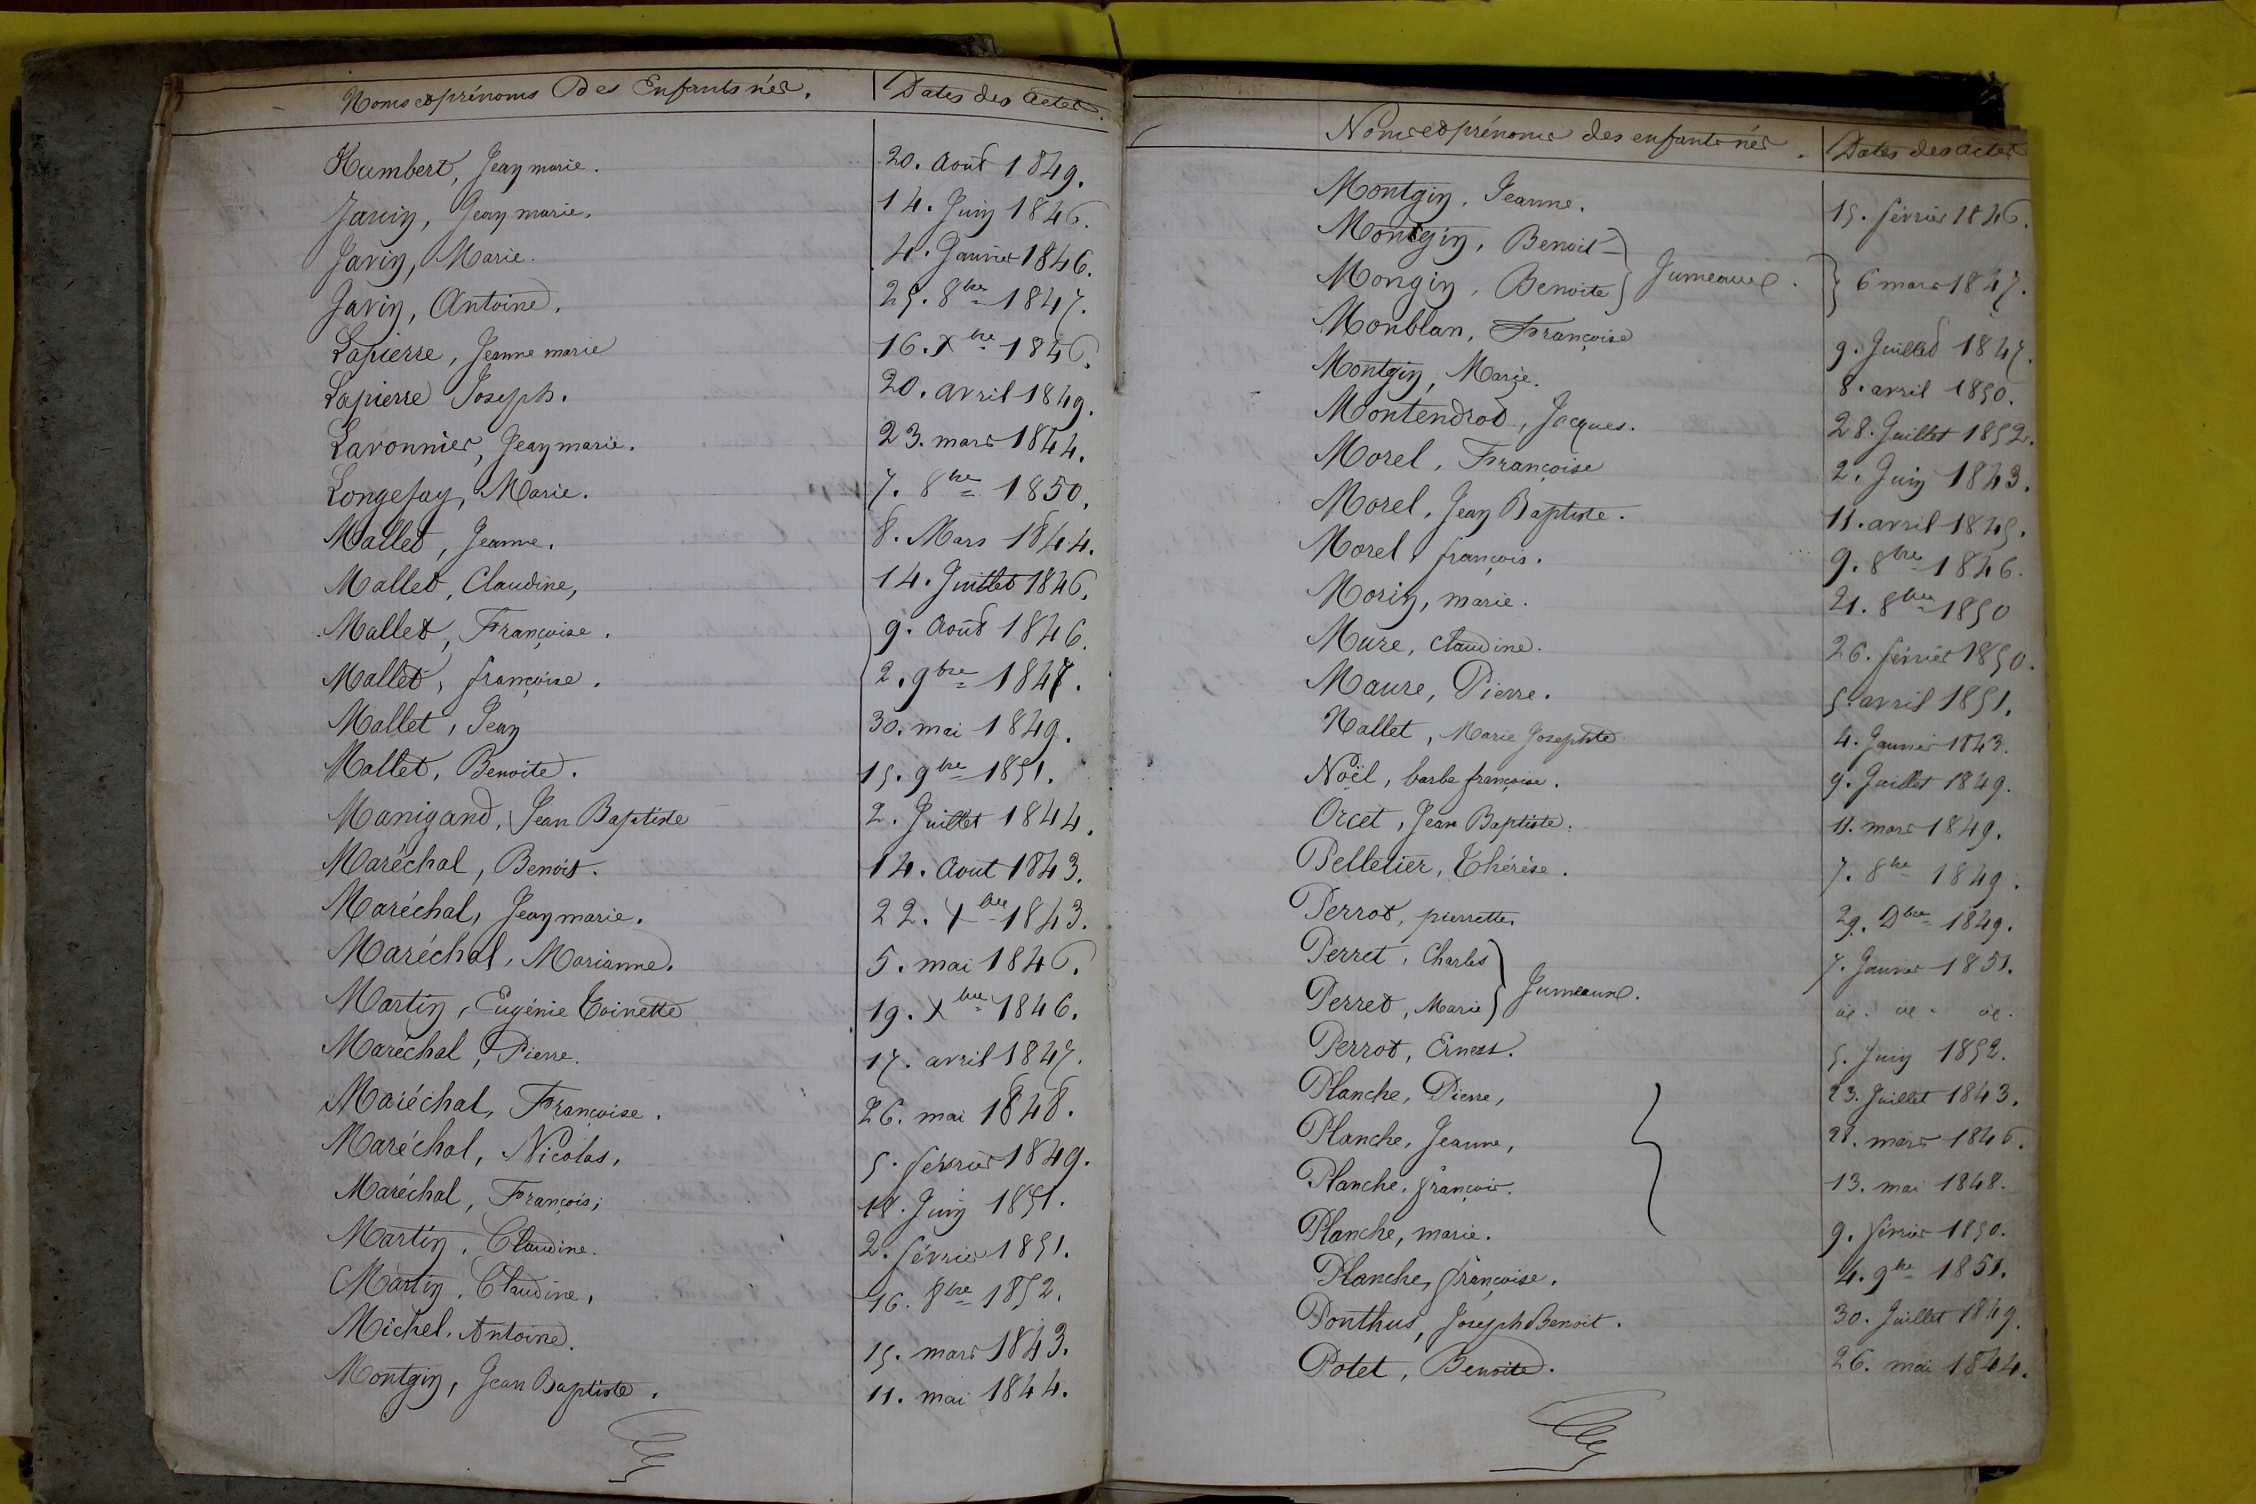 Noms et prénoms Des Enfants nés. Dates des actes.
Humbert, Jean marie. 20. Août 1849.
Janin, Jean marie. 14. Juin 1846.
Javin, Marie. 4. Janvier 1846.
Javin, Antoine. 25. 8bre 1847.
Lapierre, Jeanne marie 16. Xbre 1846.
Lapierre Joseph. 20. avril 1849.
Lavonnier, Jean marie. 23. mars 1844.
Longefay, Marie. 7. 8bre 1850.
Mallet, Jeanne. 8. Mars 1844.
Mallet, Claudine, 14. Juillet 1846.
Mallet, Françoise. 9. Août 1846.
Mallet, françoise. 2. 9bre 1847.
Mallet, Jean 30. mai 1849.
Mallet, Benoite. 15. 9bre 1851.
Manigand, Jean Baptiste 2. Juillet 1844.
Maréchal, Benoit. 14. Aout 1843.
Maréchal, Jean marie. 22. Xbre 1843.
Maréchal, Marianne. 5. mai 1846.
Martin, Eugénie Toinette 19. Xbre 1846.
Maréchal, Pierre. 17. avril 1847.
Maréchal, Françoise. 26. mai 1848.
Maréchal, Nicolas, 5. février 1849.
Maréchal, François, 18. Juin 1851.
Martin, Claudine. 2. février 1851.
Martin, Claudine, 16. 8bre 1852.
Michel, Antoine. 15. mars 1843.
Montgin, Jean Baptiste. 11. mai 1844.
Noms et prénoms des enfants nés. Dates des actes
Montgin, Jeanne. 15. février 1846.
Montgin, Benoit
Mongin, Benoite Jumeaux. 6 mars 1847.
Monblan, Françoise 9. Juillet 1847.
Montgin, Marie. 8. avril 1850.
Montendrod, Jacques. 28. Juillet 1852.
Morel, Françoise 2. Juin 1843.
Morel, Jean Baptiste. 11. avril 1845.
Morel, françois. 9. 8bre 1846.
Morin, marie. 21. 8bre 1850
Mure, Claudine. 26. février 1850.
Maure, Pierre. 5. avril 1851.
Nallet, Marie Josephte 4. Janvier 1843.
Noël, barbe françoise. 9. Juillet 1849.
Orcet, Jean Baptiste. 11. mars 1849.
Pelletier, Thérèse. 7. 8bre 1849.
Perrot, pierrette. 29. Dbre 1849.
Perret, Charles 7. Janvier 1851.
Jumeaux.
Perret, Marie id. id. id.
Perrot, Ernest. 5. Juin 1852.
Planche, Pierre, 23. Juillet 1843.
Planche, Jeanne, 21. mars 1846.
Planche, françois. 13. mai 1848.
Planche, marie. 9. février 1850.
Planche, françoise. 4. 9bre 1851.
Ponthus, Joseph Benoit. 30. Juillet 1849.
Potet, Benoite. 26. mai 1844.